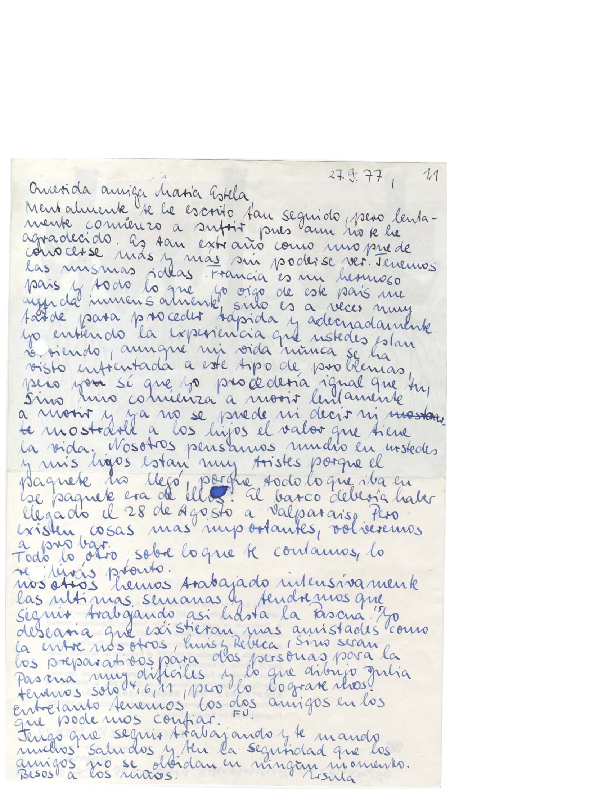 27.9.77, 1/1
Querida amiga Maria Estela,
Mentalmente te he escrito tan seguido, pero lenta-
mente comienzo a sufrir pues aun no te he
agradecido. Es tan extraño como uno puede
conocerse más y más sin poderse ver. Tenemos
las mismas ideas Francia es un hermoso
pais y todo lo que yo oigo de este pais me
ayuda inmensamente, sino es a veces muy
tarde para proceder rápida y adecuadamente.
yo entiendo la experiencia que ustedes estan
viviendo, aunque mi vida nunca se ha
visto enfrentada a este tipo de problemas,
pero yo sé que yo procederia igual que tu,
Sino uno comienza a morir lentamente
a morir y ya no se puede ni decir ni mostrar
te mostrarle a los hijos el valor que tiene
la vida. Nosotros pensamos mucho en ustedes
y mis hijos estan muy tristes porque el
paquete no llegó, porque todo lo que iba en
ese paquete era de ellos. El barco deberia haber
llegado el 28 de Agosto a Valparaiso. Pero
existen cosas mas importantes, volveremos
a probar.
Todo lo otro, sobre lo que te contamos, lo
verás pronto.
nosotros hemos trabajado intensivamente
las ultimas semanas y tendremos que
seguir trabajando asi hasta la Pascua. Yo
desearia que existieran mas amistades como
la entre nosotros, Luis y Rebeca, Sino seran
los preparativos para dos personas para la
Pascua muy dificiles y lo que dibujo Julia
tenemos solo 4, 6, 11, pero lo lograremos.
entretanto tenemos los dos amigos en los
que podemos confiar. FU.
Tengo que seguir trabajando y te mando
muchos saludos y ten la seguridad que los
amigos no se olvidan en ningun momento.
Besos a los niños. Ursula